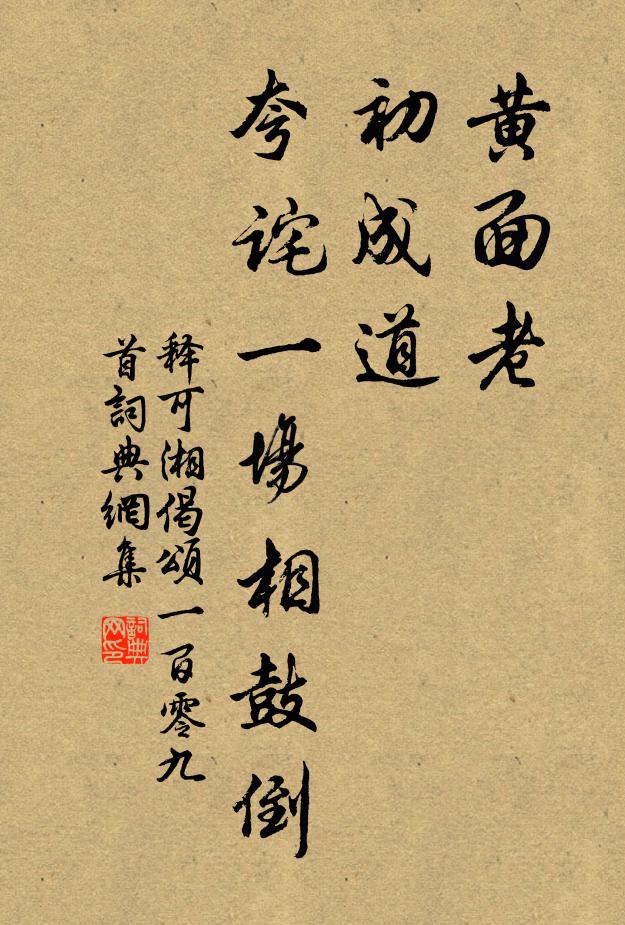 黄面老
初成道
夸詫一場相鼓倒
释可湘偈頌一百零九
首詞典網集
詞典
网印